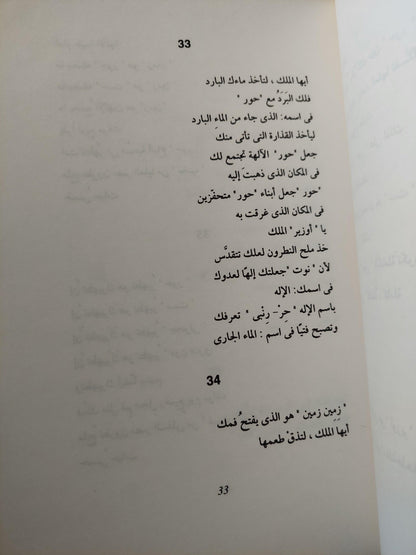 33
أيها الملك ، لتأخذ ماءك البارد
فلك البَرَدُ مع "حور"
فى اسمه: الذى جاء من الماءِ البارد
ليأخذ القذارة التى تأتى منك
جعل "حور" الآلهة تجتمع لك
فى المكان الذى ذهبتَ إليه
"حور" جعل أبناء "حور" متحفّزين
فى المكان الذى غرقت به
يا "أوزير" الملك
خذ ملح النطرون لعلك تتقدَّس
لأن "نوت" جعلتك إلهًا لعدوك
فى اسمك: الإله
باسم الإله "حِرْ- رنْبى" تعرفك
وتصبح فتيًا فى اسم : الماء الجارى
34
"زمين زمين" هو الذى يفتحُ فمك
أيها الملك ، لتذقْ طعمها
33